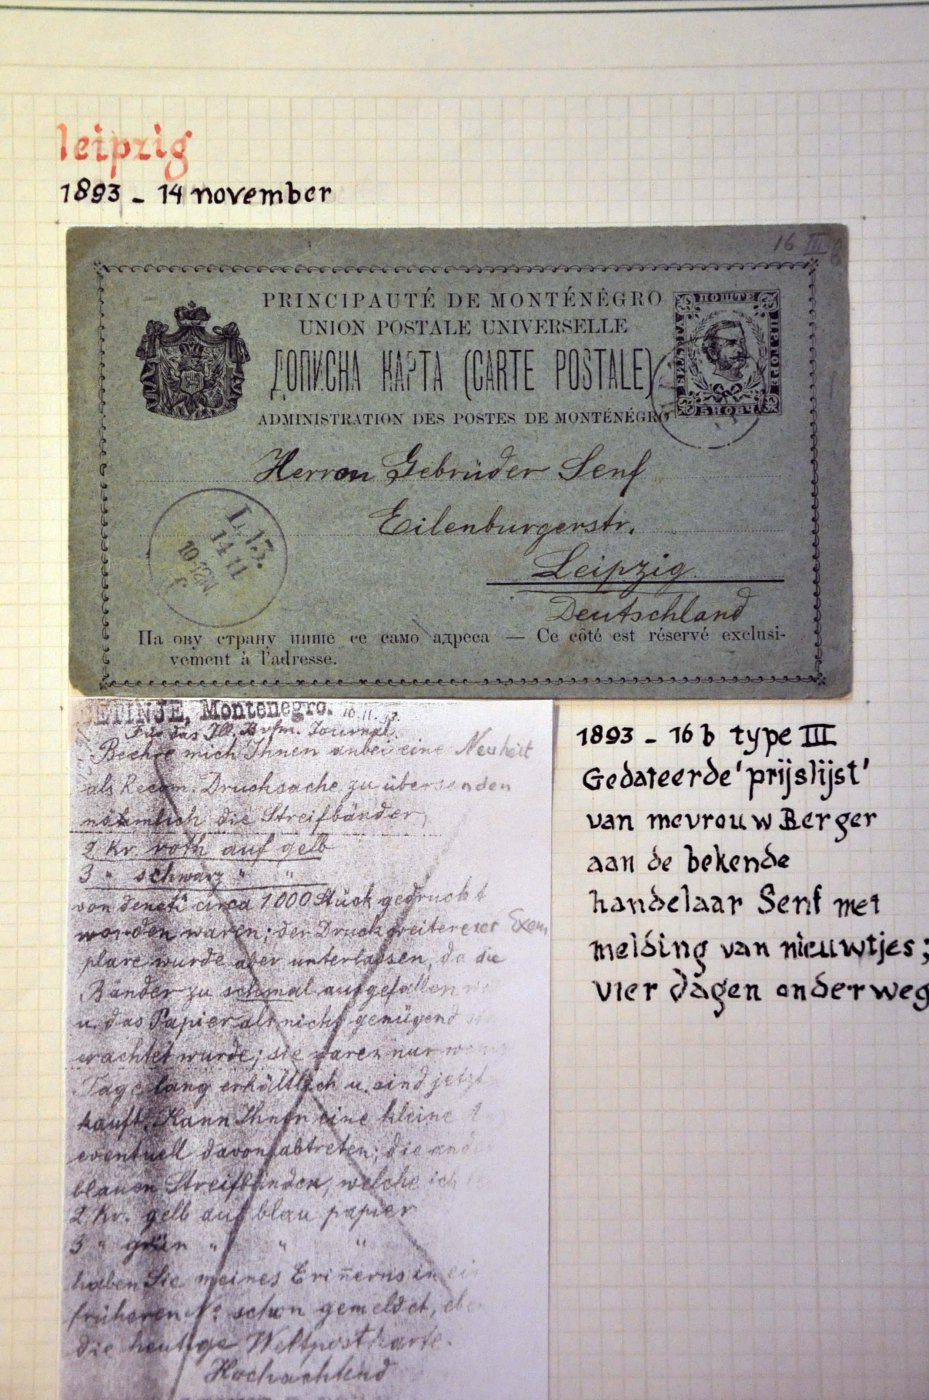 leipzig
1893 - 14 november
16 III
PRINCIPAUTÉ DE MONTÉNÉGRO
UNION POSTALE UNIVERSELLE
ДОПИСНА КАРТА (CARTE POSTALE)
ADMINISTRATION DES POSTES DE MONTÉNÉGRO
ПОШТЕ
Herren Gebrüder Senf
Eilenburgerstr.
Leipzig
Deutschland
L. 13.
14 11
На ову страну пише се само адреса — Ce côté est réservé exclusi-
vement à l'adresse.
CETINJE, Montenegro.
Für das Ill. Brfm. Journal.
Beehre mich Ihnen anbei eine Neuheit
als Recom. Drucksache zu übersenden
nämlich die Streifbänder,
2 Kr. roth auf gelb
3 " schwarz " "
von denen circa 1000 Stück gedruckt
worden waren; der Druck weiterer Exem
plare wurde aber unterlassen, da die
Bänder zu schmal aufgefallen
u. das Papier als nicht genügend
erachtet wurde; sie waren nur
Tage lang erhältlich u. sind jetzt
kauft. Kann Ihnen eine kleine
eventuell davon abtreten; die
blauen Streifbänder, welche ich
2 Kr. gelb auf blau papier
3 " grün " " "
haben Sie meines Erinerns in
früheren No. schon gemeldet,
die heutige Weltpostkarte.
Hochachtend
1893 - 16 b type III
Gedateerde 'prijslijst'
van mevrouw Berger
aan de bekende
handelaar Senf met
melding van nieuwtjes;
vier dagen onderweg